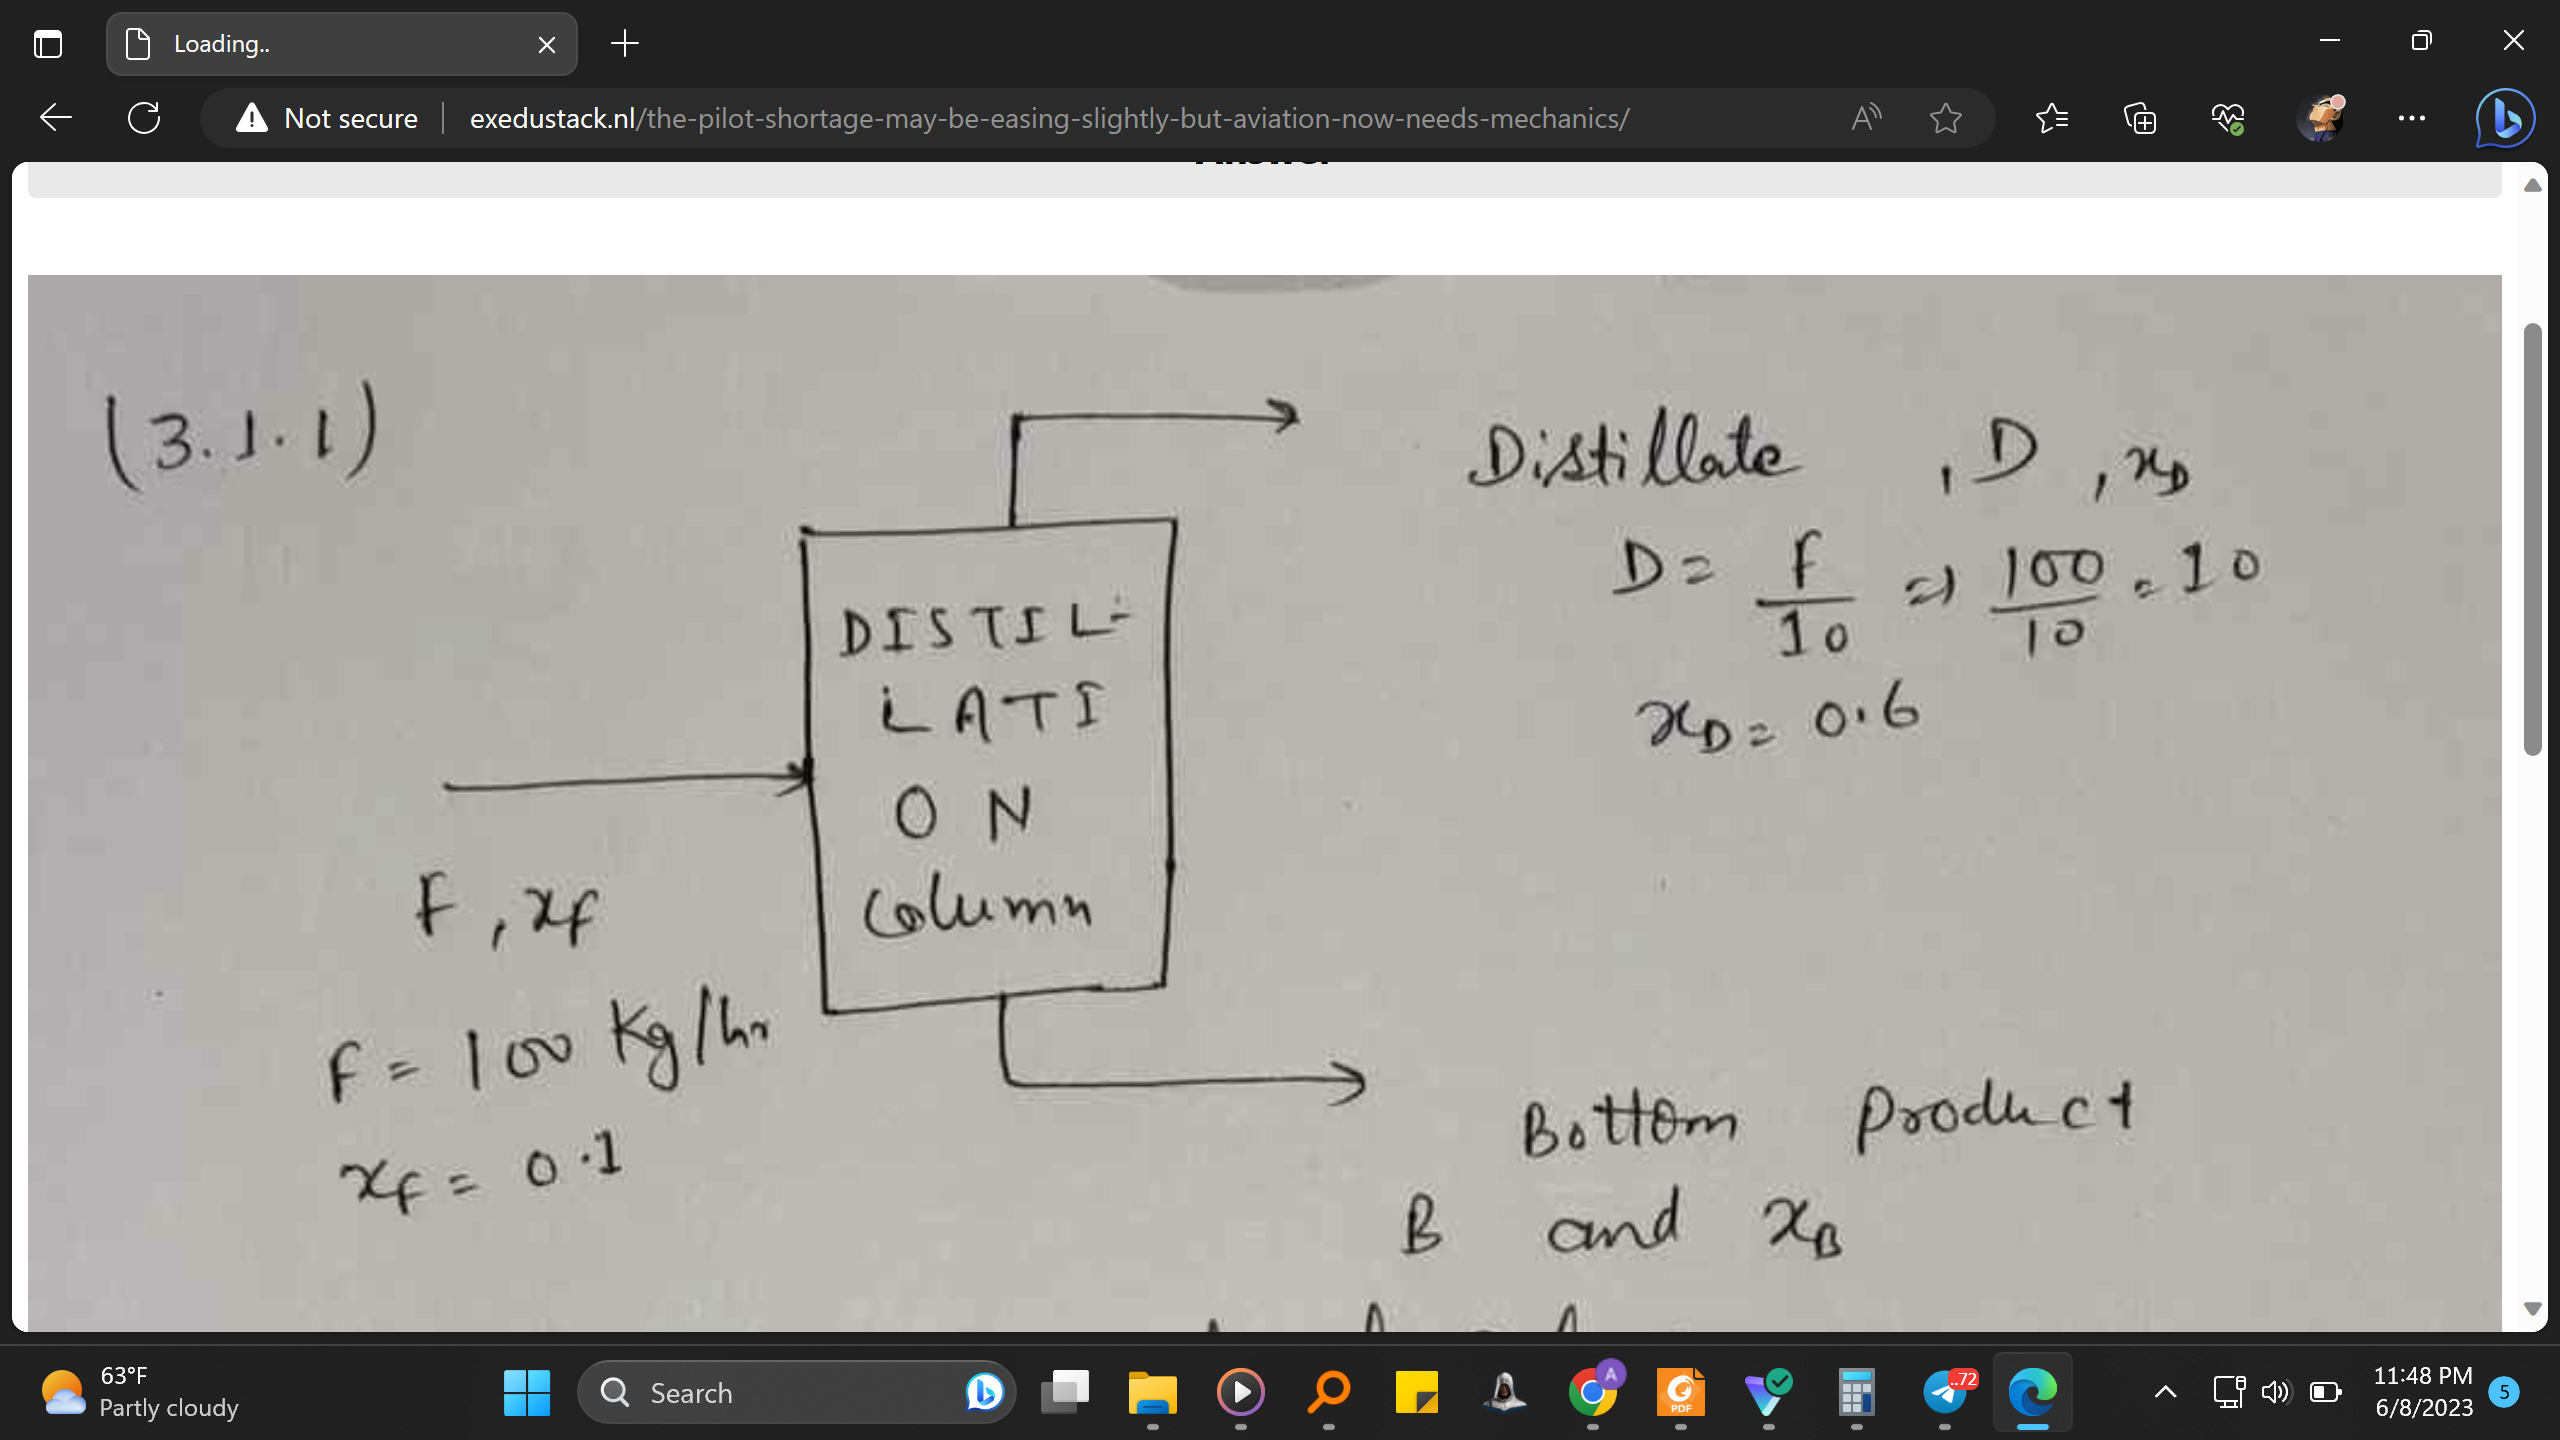 Loading..
Not secure
exedustack.nl/the-pilot-shortage-may-be-easing-slightly-but-aviation-now-needs-mechanics/
(3.1.1)
Distillate , D , xD
D = F/10 => 100/10 = 10
xD = 0.6
DISTIL-
LATI
ON
Column
F , xf
F = 100 Kg/hr
xf = 0.1
Bottom Product
B and xB
63°F
Partly cloudy
Search
A
PDF
..72
11:48 PM
6/8/2023
5